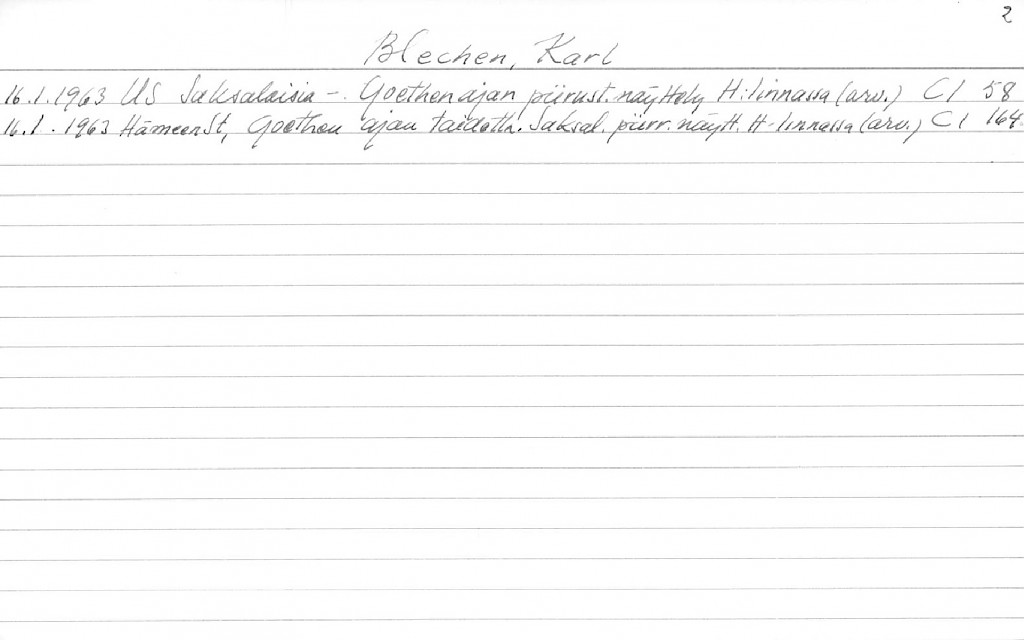 2
Blechen, Karl
16.1.1963 US Saksalaisia -. Goethen ajan piirust. näyttely H:linnassa (arv.) CI 58
16.1.1963 HämeenSt, Goethen ajan taidetta. Saksal. piirr. näytt. H-linnassa (arv.) CI 164